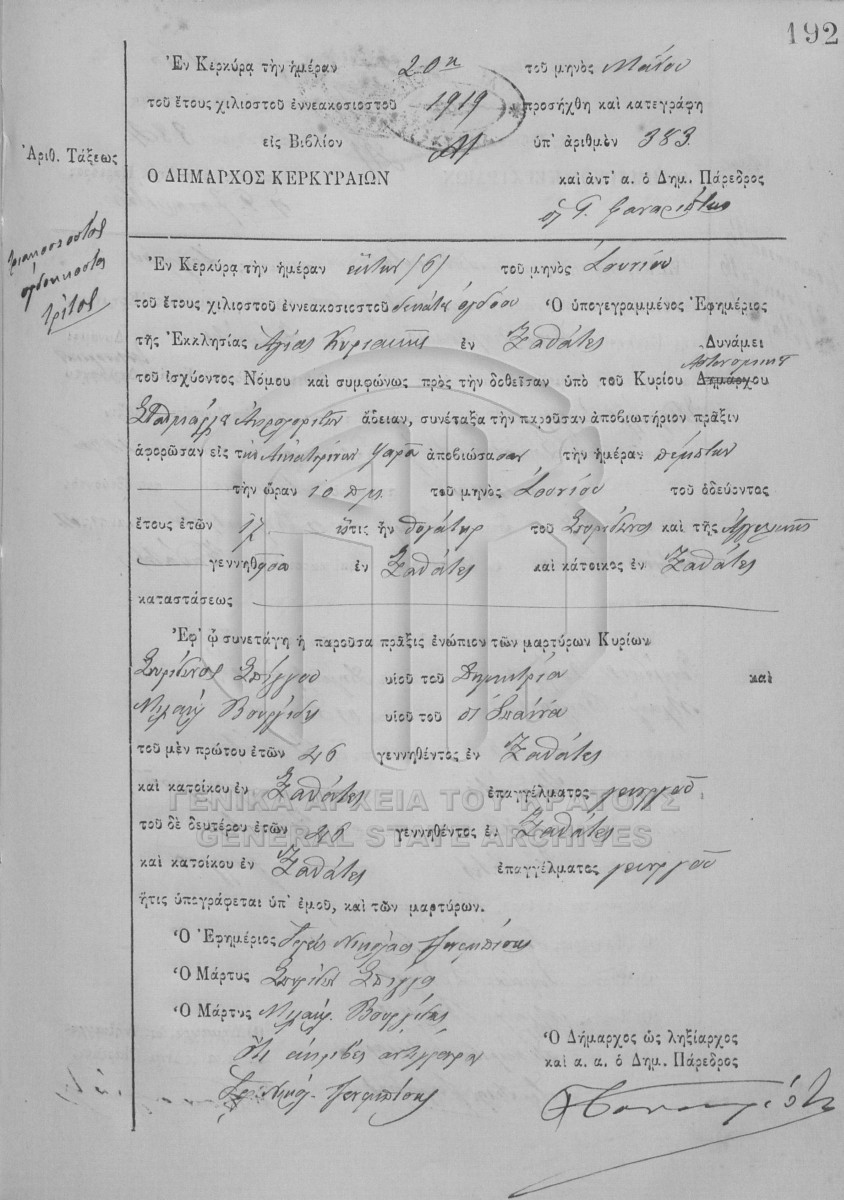 192
Ἐν Κερκύρᾳ τὴν ἡμέραν 20ῃ τοῦ μηνὸς Μαΐου
τοῦ ἔτους χιλιοστοῦ ἐννεακοσιοστοῦ 1919 προσήχθη καὶ κατεγράφη
εἰς Βιβλίον ὑπ' ἀριθμὸν 383
Ἀριθ. Τάξεως
Ο ΔΗΜΑΡΧΟΣ ΚΕΡΚΥΡΑΙΩΝ καὶ ἀντ' α. ὁ Δημ. Πάρεδρος
τριακοσιοστὸς
ὀγδοηκοστὸς
τρίτος
Ἐν Κερκύρᾳ τὴν ἡμέραν ἕκτην /6/ τοῦ μηνὸς Ἰουνίου
τοῦ ἔτους χιλιοστοῦ ἐννεακοσιοστοῦ δεκάτου ὀγδόου Ὁ ὑπογεγραμμένος Ἐφημέριος
τῆς Ἐκκλησίας Ἁγίας Κυριακῆς ἐν Ζαβάτες Δυνάμει
τοῦ ἰσχύοντος Νόμου καὶ συμφώνως πρὸς τὴν δοθεῖσαν ὑπὸ τοῦ Κυρίου Δημάρχου
ἄδειαν, συνέταξα τὴν παροῦσαν ἀποβιωτήριον πρᾶξιν
ἀφορῶσαν εἰς τὴν Αἰκατερίναν ἀποβιώσασαν τὴν ἡμέραν πέμπτην
τὴν ὥραν 10 πμ. τοῦ μηνὸς Ἰουνίου τοῦ ὁδεύοντος
ἔτους ἐτῶν 17 ἥτις ἦν θυγάτηρ τοῦ Σπυρίδωνος καὶ τῆς Ἀγγελικῆς
γεννηθεῖσα ἐν Ζαβάτες καὶ κάτοικος ἐν Ζαβάτες
καταστάσεως
Ἐφ' ᾧ συνετάγη ἡ παροῦσα πρᾶξις ἐνώπιον τῶν μαρτύρων Κυρίων
Σπυρίδωνος Σπίγγου υἱοῦ τοῦ Δημητρίου καὶ
Μιχαὴλ Βουργίδη υἱοῦ τοῦ
τοῦ μὲν πρώτου ἐτῶν 46 γεννηθέντος ἐν Ζαβάτες
καὶ κατοίκου ἐν Ζαβάτες ἐπαγγέλματος γεωργοῦ
ΓΕΝΙΚΑ ΑΡΧΕΙΑ ΤΟΥ ΚΡΑΤΟΥΣ
τοῦ δὲ δευτέρου ἐτῶν 46 γεννηθέντος ἐν Ζαβάτες
GENERAL STATE ARCHIVES
καὶ κατοίκου ἐν Ζαβάτες ἐπαγγέλματος γεωργοῦ
ἥτις ὑπογράφεται ὑπ' ἐμοῦ, καὶ τῶν μαρτύρων.
Ὁ Ἐφημέριος Ἱερεὺς Νικόλαος
Ὁ Μάρτυς Σπυρίδων
Ὁ Μάρτυς Μιχαὴλ Βουργίδης
Ὅτι ἀκριβὲς ἀντίγραφον
Ὁ Δήμαρχος ὡς ληξίαρχος
καὶ α. α. ὁ Δημ. Πάρεδρος